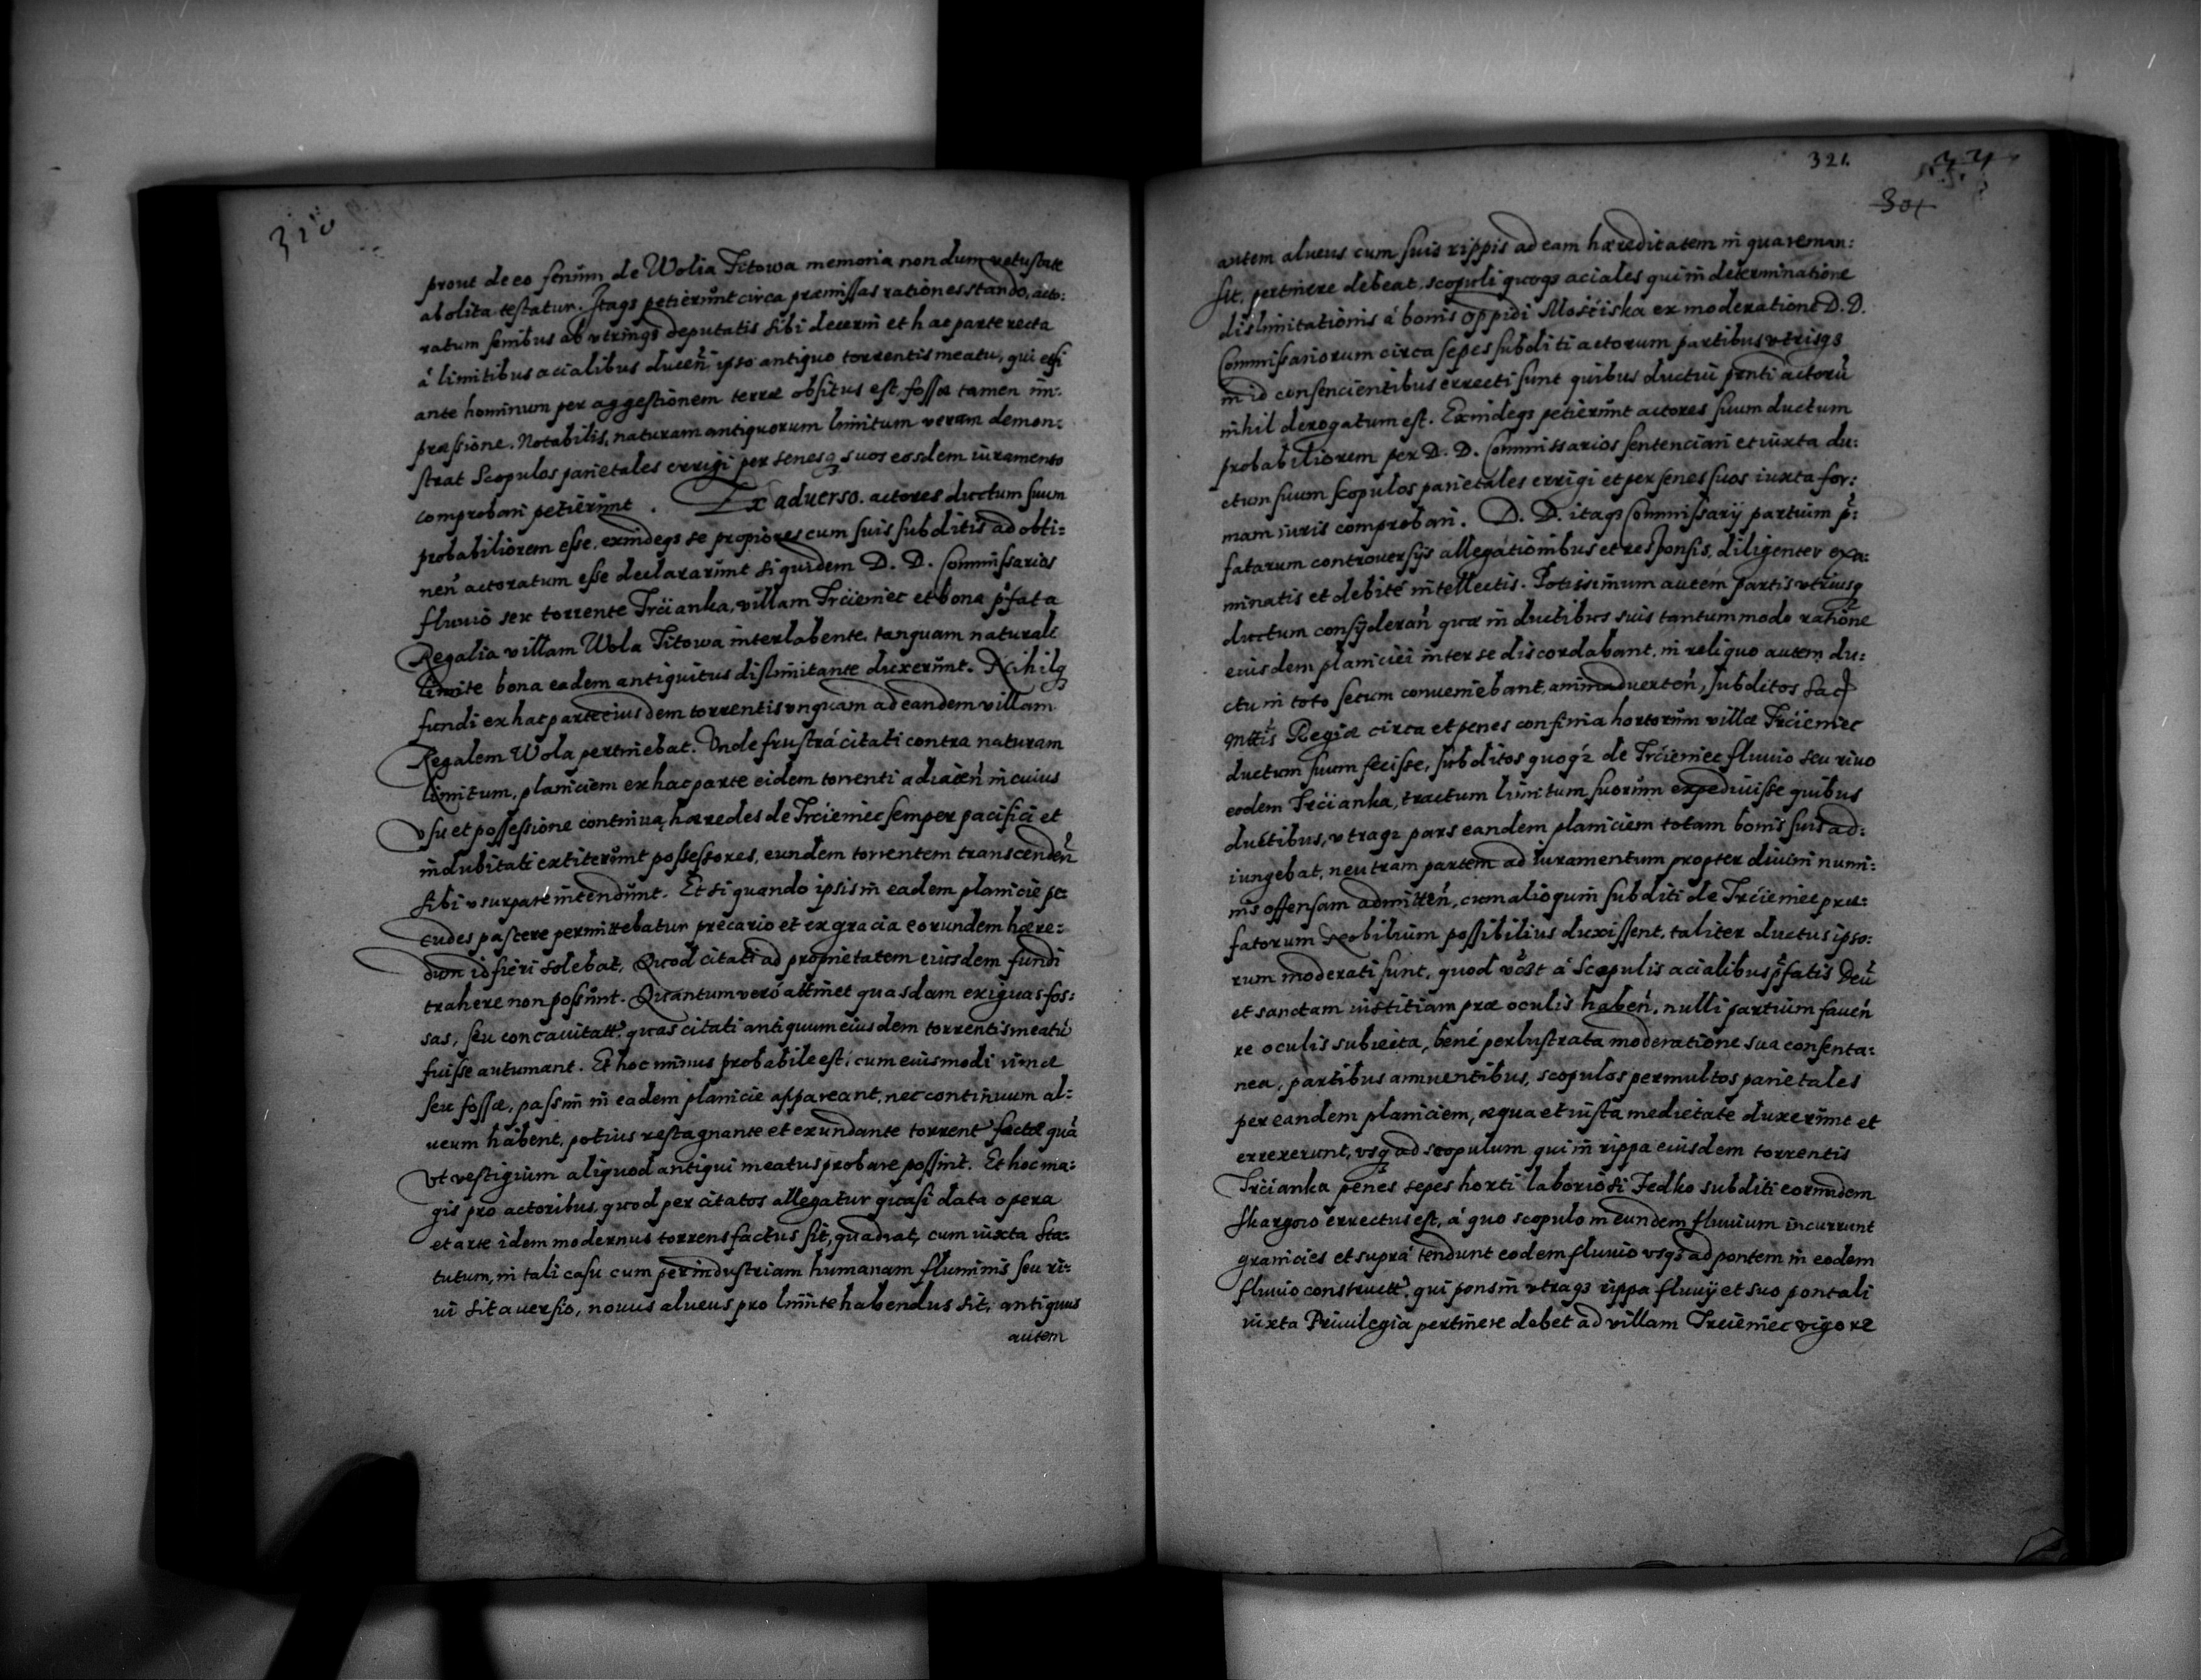 320
prout de eo senum de Wolia Titowa memoria nondum vetustate
abolita testatur. Itaqȝ petierunt circa præmissas rationes stando, acto:
ratum senibus ab utrinqȝ deputatis sibi decerni et hac parte recta
á limitibus acialibus ducen̄, ipso antiquo torrentis meatu, qui etsi
ante hominum per aggestionem terræ obsitus est, fossæ tamen im:
præssione. Notabilis, naturam antiquorum limitum veram demon:
strat Scopulos parietales errigi per senesqȝ suos eosdem iuramento
comprobari petierunt. Ex aduerso. actores ductum suum
probabiliorem esse, exindeqȝ se propiores cum suis subditis ad obti=
nen̄ actoratum esse declararunt siquidem D. D. Commissarios
fluuio seu torrente Trcianka, villam Trcieniec et bona p̄fata
Regalia villam Wola Titowa interlabente, tanquam naturali
limite bona eadem antiquitus dislimitante duxerunt. Nihilqȝ
fundi ex hac parte eiusdem torrentis vnquam ad eandem villam
Regalem Wola pertinebat. Vnde frustrá citati contra naturam
limitum, planiciem ex hac parte eidem torrenti adiacen̄ in cuius
vsu et possessione continua hæredes de Trcieniec semper pacifici et
indubitati extiterunt possessores, eundem torrentem transcenden̄
sibi vsurpare intendunt. Et si quando ipsis in eadem planicie pe:
cudes pascere permittebatur precario et ex gracia eorundem hære:
dum id fieri solebat, Quod citati ad proprietatem eiusdem fundi
trahere non possunt. Quantum veró attinet quasdam exiguas fos:
sas, seu concauitatt, quas citati antiquum eiusdem torrentis meatū
fuisse autumant. Et hoc minus probabile est, cum eiusmodi
seu fossæ, passim in eadem planicie appareant, nec continuum al:
ueum habent, potius restagnante et exundante torrent factæ quá
vt vestigium aliquod antiqui meatus probare possint. Et hoc ma:
gis pro actoribus, quod per citatos allegatur quasi data opera
et arte idem modernus torrens factus sit, quadrat, cum iuxta Sta:
tutum, in tali casu cum per industriam humanam fluminis seu ri:
ui sit auersio, nouus alueus pro limite habendus sit, antiquus
autem
321.
301
autem alueus cum suis rippis ad eam hæreditatem in qua reman:
sit, pertinere debeat, scopuli quoqȝ aciales qui in determinatione
dislimitationis á bonis oppidi Mościska ex moderatione D. D.
Commissariorum circa sepes subditi actorum partibus utrisqȝ
in id consencientibus errecti sunt quibus ductui pn̄ti actorū
nihil derogatum est. Exindeqȝ petierunt actores suum ductum
probabiliorem per D. D. Commissarios sentenciari et iuxta du:
ctum suum scopulos parietales errigi et per senes suos iuxta for:
mam iuris comprobari. D. D. itaqȝ Commissarij partium p̄:
fatarum controuersijs allegationibus et responsis, diligenter exa:
minatis et debité intellectis. Potissimum autem partis vtriusqȝ
ductum consyderan̄ quæ in ductibus suis tantummodo ratione
eiusdem planiciei inter se discordabant, in reliquo autem du:
ctu in toto secum conueniebant, animaduerten̄, subditos Sac
Mttis Regiæ circa et penes confinia hortorum villæ Trcieniec
ductum suum fecisse, subditos quoqȝ de Trcieniec fluuio seu riuo
eodem Trcianka, tractum limitum suorum expediuisse quibus
ductibus, vtraqȝ pars eandem planiciem totam bonis suis ad:
iungebat, neutram partem ad iuramentum propter diuini numi:
nis offensam admitten̄, cum alioquin subditi de Trcieniec præ:
fatorum Nobilium possibilius duxissent, taliter ductus ipso:
rum moderati sunt, quod á Scopulis acialibus p̄fatis Deū
et sanctam iustitiam præ oculis haben̄, nulli partium fauen̄
re oculis subiecta, bené perlustrata moderatione sua consenta:
nea, partibus annuentibus, scopulos permultos parietales
per eandem planiciem, æqua et iusta medietate duxerunt et
errexerunt, vsqȝ ad scopulum qui in rippa eiusdem torrentis
Trcianka penes sepes horti laboriosi Fedko subditi eorundem
errectus est, á quo scopulo in eundem fluuium incurrunt
granicies et suprá tendunt eodem fluuio vsqȝ ad pontem in eodem
fluuio construct, qui pons in vtraqȝ rippa fluuij et suo pontali
iuxta Priuilegia pertinere debet ad villam Trcieniec vigore